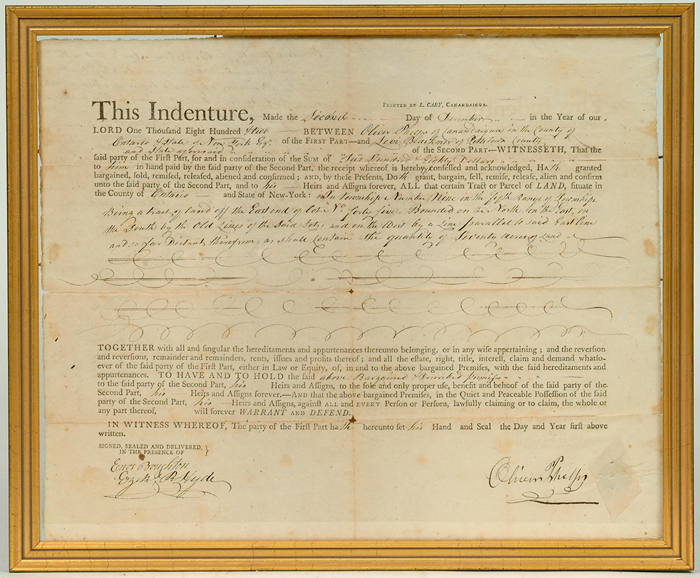 PRINTED BY L. CARY, CANANDAIGUA.
This Indenture, Made the Second Day of December in the Year of our
LORD One Thousand Eight Hundred BETWEEN Oliver Phelps of Canandaigua in the County of
Ontario & State of New York Esqr. of the FIRST PART—and Levi of County
and State aforesaid of the SECOND PART—WITNESSETH, That the
said party of the First Part, for and in consideration of the SUM of Hundred & Eighty Dollars
to him in hand paid by the said party of the Second Part, the receipt whereof is hereby confessed and acknowledged, Hath granted
bargained, sold, remised, released, aliened and confirmed; AND, by these Presents, Doth grant, bargain, sell, remise, release, alien and confirm
unto the said party of the Second Part, and to his Heirs and Assigns forever, ALL that certain Tract or Parcel of LAND, situate in
the County of Ontario and State of New-York: in Township Number Nine in the fifth Range of Townships.
Being a tract of land off the East end of Lot No. forty five. Bounded on the North, on the East, on
the South by the Old Lines of the Said Lot, and on the West by a Line parallel to said East line
and so far Distant, therefrom, as shall Contain the quantity of Seventy acres of Land
TOGETHER with all and singular the hereditaments and appurtenances thereunto belonging, or in any wise appertaining; and the reversion
and reversions, remainder and remainders, rents, issues and profits thereof; and all the estate, right, title, interest, claim and demand whatso-
ever of the said party of the First Part, either in Law or Equity, of, in and to the above bargained Premises, with the said hereditaments and
appurtenances. TO HAVE AND TO HOLD the said above Bargained & Described premises
to the said party of the Second Part, his Heirs and Assigns, to the sole and only proper use, benefit and behoof of the said party of the
Second Part, his Heirs and Assigns forever.—And that the above bargained Premises, in the Quiet and Peaceable Possession of the said
party of the Second Part, his —Heirs and Assigns, against ALL and EVERY Person or Persons, lawfully claiming or to claim, the whole or
any part thereof, will forever WARRANT AND DEFEND.
IN WITNESS WHEREOF, The party of the First Part hath hereunto set his Hand and Seal the Day and Year first above
written.
SIGNED, SEALED AND DELIVERED,
IN THE PRESENCE OF
Enos Boughton
Hyde
Oliver Phelps